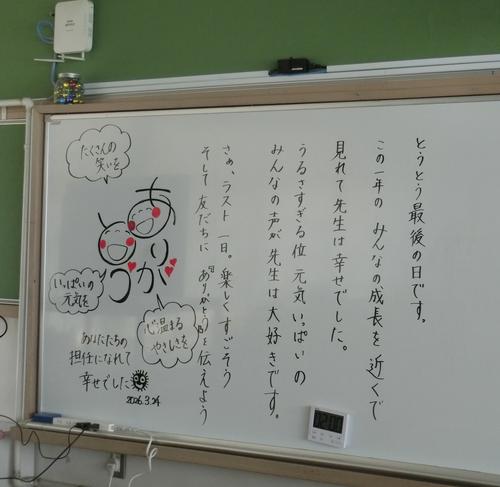 とうとう最後の日です。
この一年の みんなの成長を 近くで
見れて 先生は 幸せでした。
うるさすぎる位 元気いっぱいの
みんなの声が 先生は 大好きです。
さぁ、ラスト 一日。楽しくすごそう
そして 友だちに 『ありがとう』を 伝えよう
ありがとう
たくさんの
笑いを
いっぱいの
元気を
心温まる
やさしさを
あなたたちの
担任になれて
幸せでした
2026.3.24